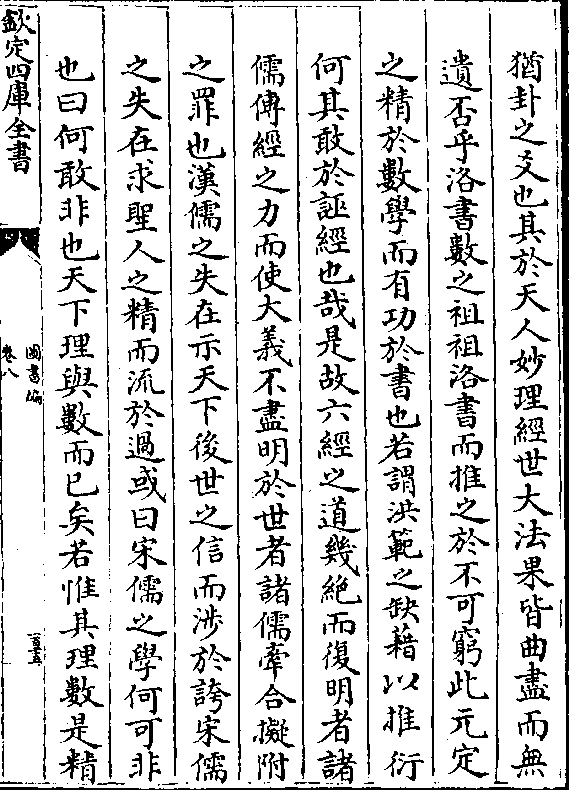 猶卦之爻也其於天人妙理經世大法果皆曲盡而無
遺否乎洛書數之祖祖洛書而推之於不可窮此元定
之精於數學而有功於書也若謂洪範之缺藉以推衍
何其敢於誣經也哉是故六經之道幾絕而復明者諸
儒傳經之力而使大義不盡明於世者諸儒牽合擬附
之罪也漢儒之失在示天下後世之信而涉於誇宋儒
之失在求聖人之精而流於過或曰宋儒之學何可非
也曰何敢非也天下理與數而已矣若惟其理數是精
欽定四庫全書
圖書編
卷八
一百十五